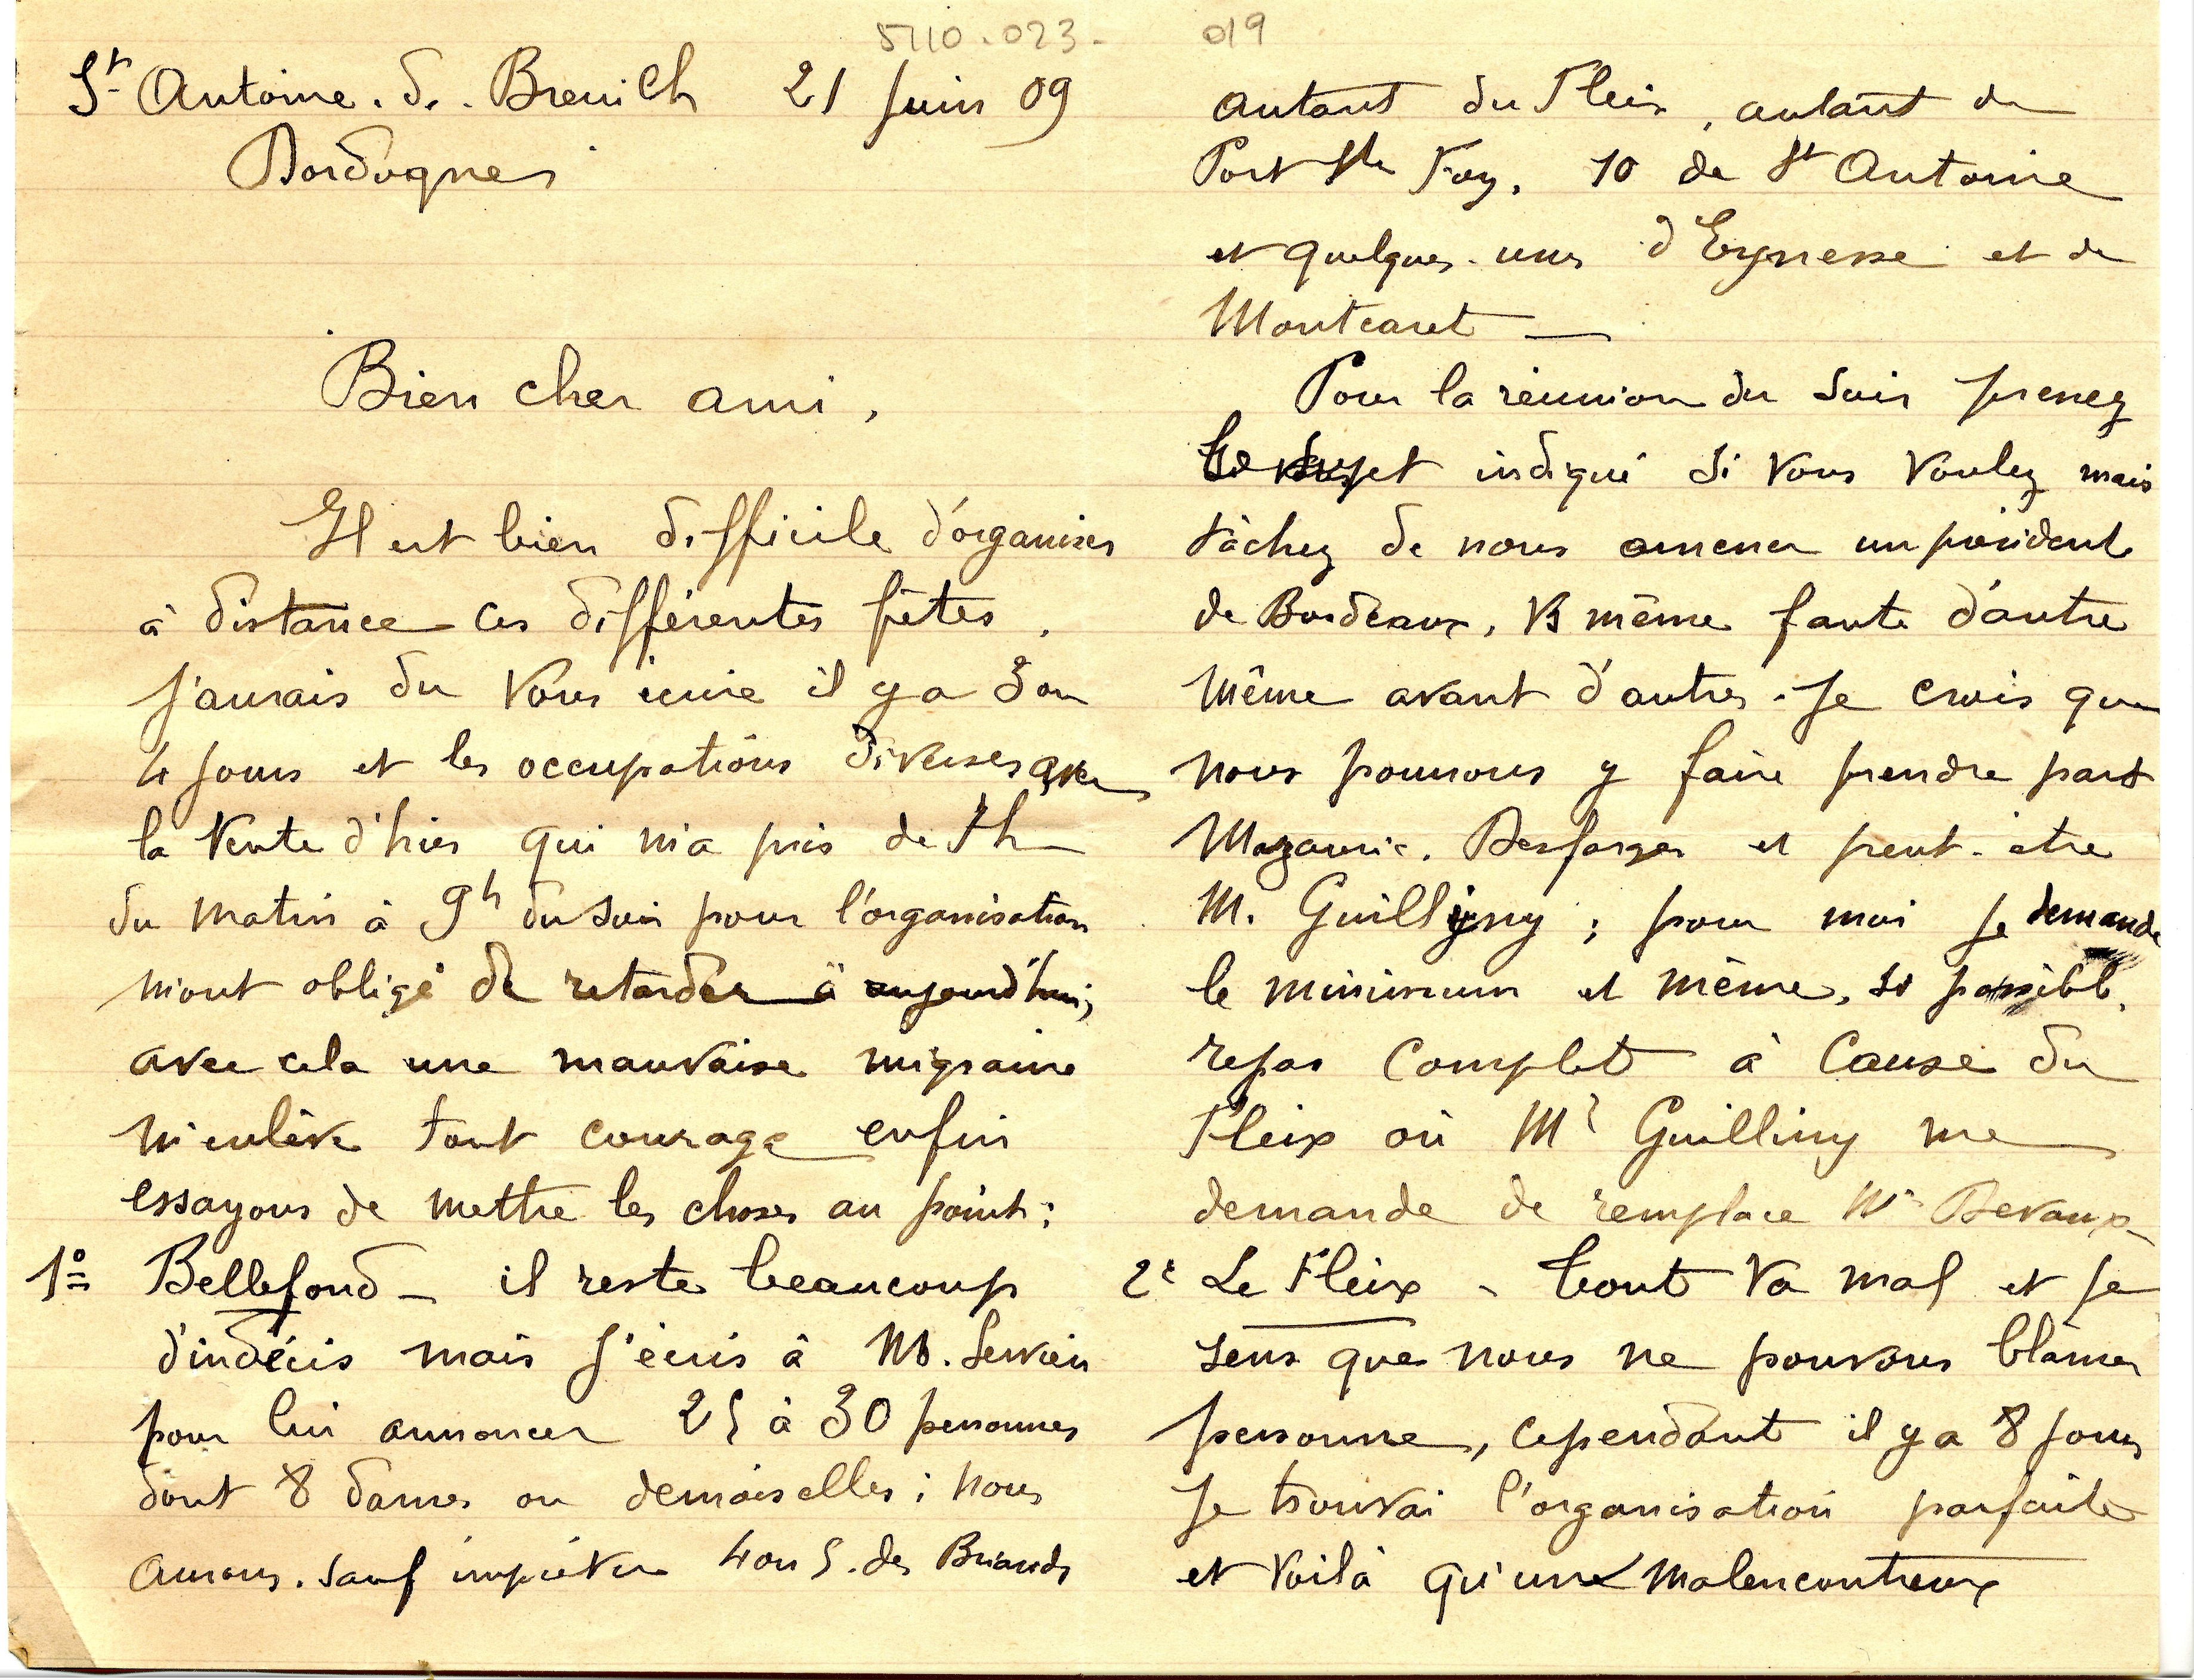 5110.023-019
St Antoine. d. Breuilh 21 juin 09
Dordogne
Bien cher ami,
Il est bien difficile d'organiser
à distance ces différentes fêtes.
J'aurais du vous écrire il y a 3 ou
4 jours et les occupations diverses avec
la Vente d'hier qui m'a pris de 7h
du matin à 9h du soir pour l'organisation
m'ont obligé de retarder à aujourd'hui;
avec cela une mauvaise migraine
m'enlève tout courage enfin
essayons de mettre les choses au point:
1º Bellefond - il reste beaucoup
d'indécis mais j'écris à M. Servien
pour lui annoncer 25 à 30 personnes
dont 8 dames ou demoiselles; nous
aurons. sauf imprévu 4 ou 5. des Briands
autant du Fleix, autant de
Port Ste Foy, 10 de St Antoine
et quelques-uns d'Eynesse et de
Montcaret —
Pour la réunion du soir prenez
le sujet indiqué si vous voulez mais
tâchez de nous amener un président
de Bordeaux, même faute d'autre
même avant d'autres. Je crois que
nous pourrons y faire prendre part
Mazauric. Desforges et peut-être
M. Guilliny; pour moi je demande
le minimum et même, si possible,
repos complet à cause du
Fleix où Mr Guilliny me
demande de remplace Mr Devaux
2º Le Fleix - tout va mal et je
sens que nous ne pouvons blâmer
personne, cependant il y a 8 jours
je trouvai l'organisation parfaite
et voilà qu'une malencontreux